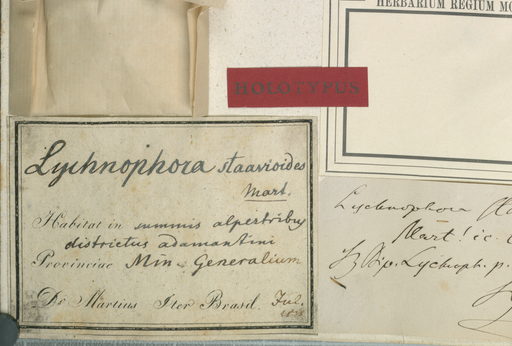 HERBARIUM REGIUM MO
HOLOTYPUS
Lychnophora staavioides
Mart.
Habitat in summis alpestribus
districtus adamantini
Provinciae Min. Generalium
Dr Martius Iter Brasil. Jul.
Lychnophora
Mart! ic.
Sz Bip. Lychnoph. p.